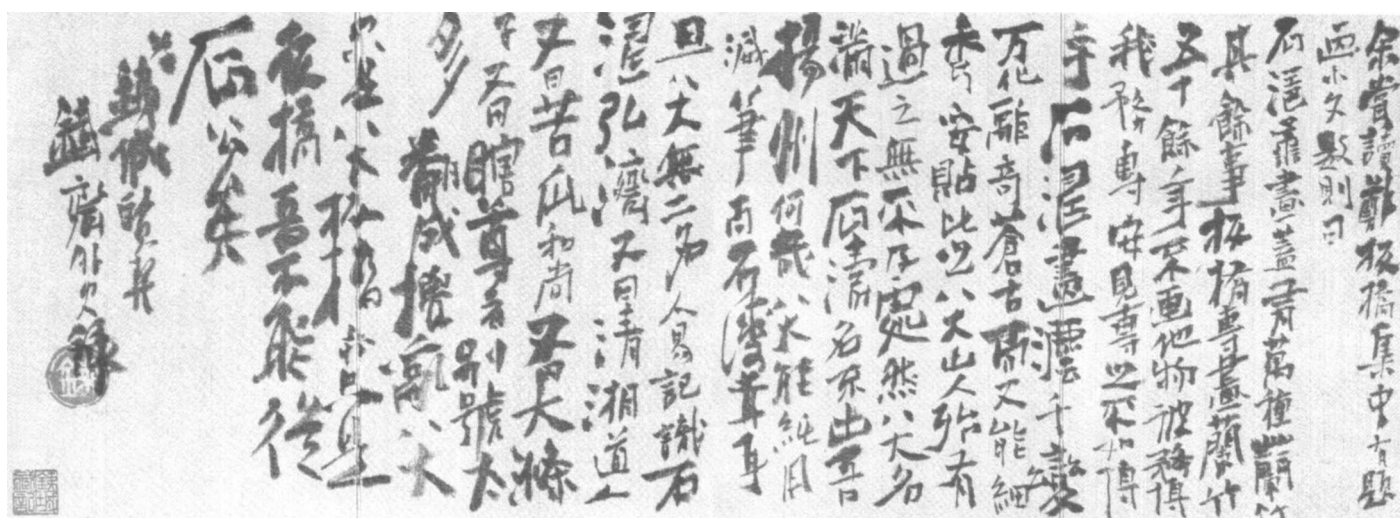 余嘗讀鄭板橋集中有題
画小文數則曰
石濤善畫蓋有萬種蘭竹
其餘事板橋專畫蘭竹
五十餘年不画他物彼務博
我務專安見專之不如博
乎石濤畫灋千變
万化離奇蒼古而又能細
秀妥貼比之八大山人殆有
過之無不及處然八大名
滿天下石濤名不出吾
揚州何哉八大能純用
減筆而石濤微茸耳
且八大無二名人易記識石
濤弘濟又曰清湘道人
又曰苦瓜和尚又曰大滌
子又曰瞎尊者別號太
多翻成攪亂八大
只是八大板橋亦只是
板橋吾不能從
石公矣
齋外史